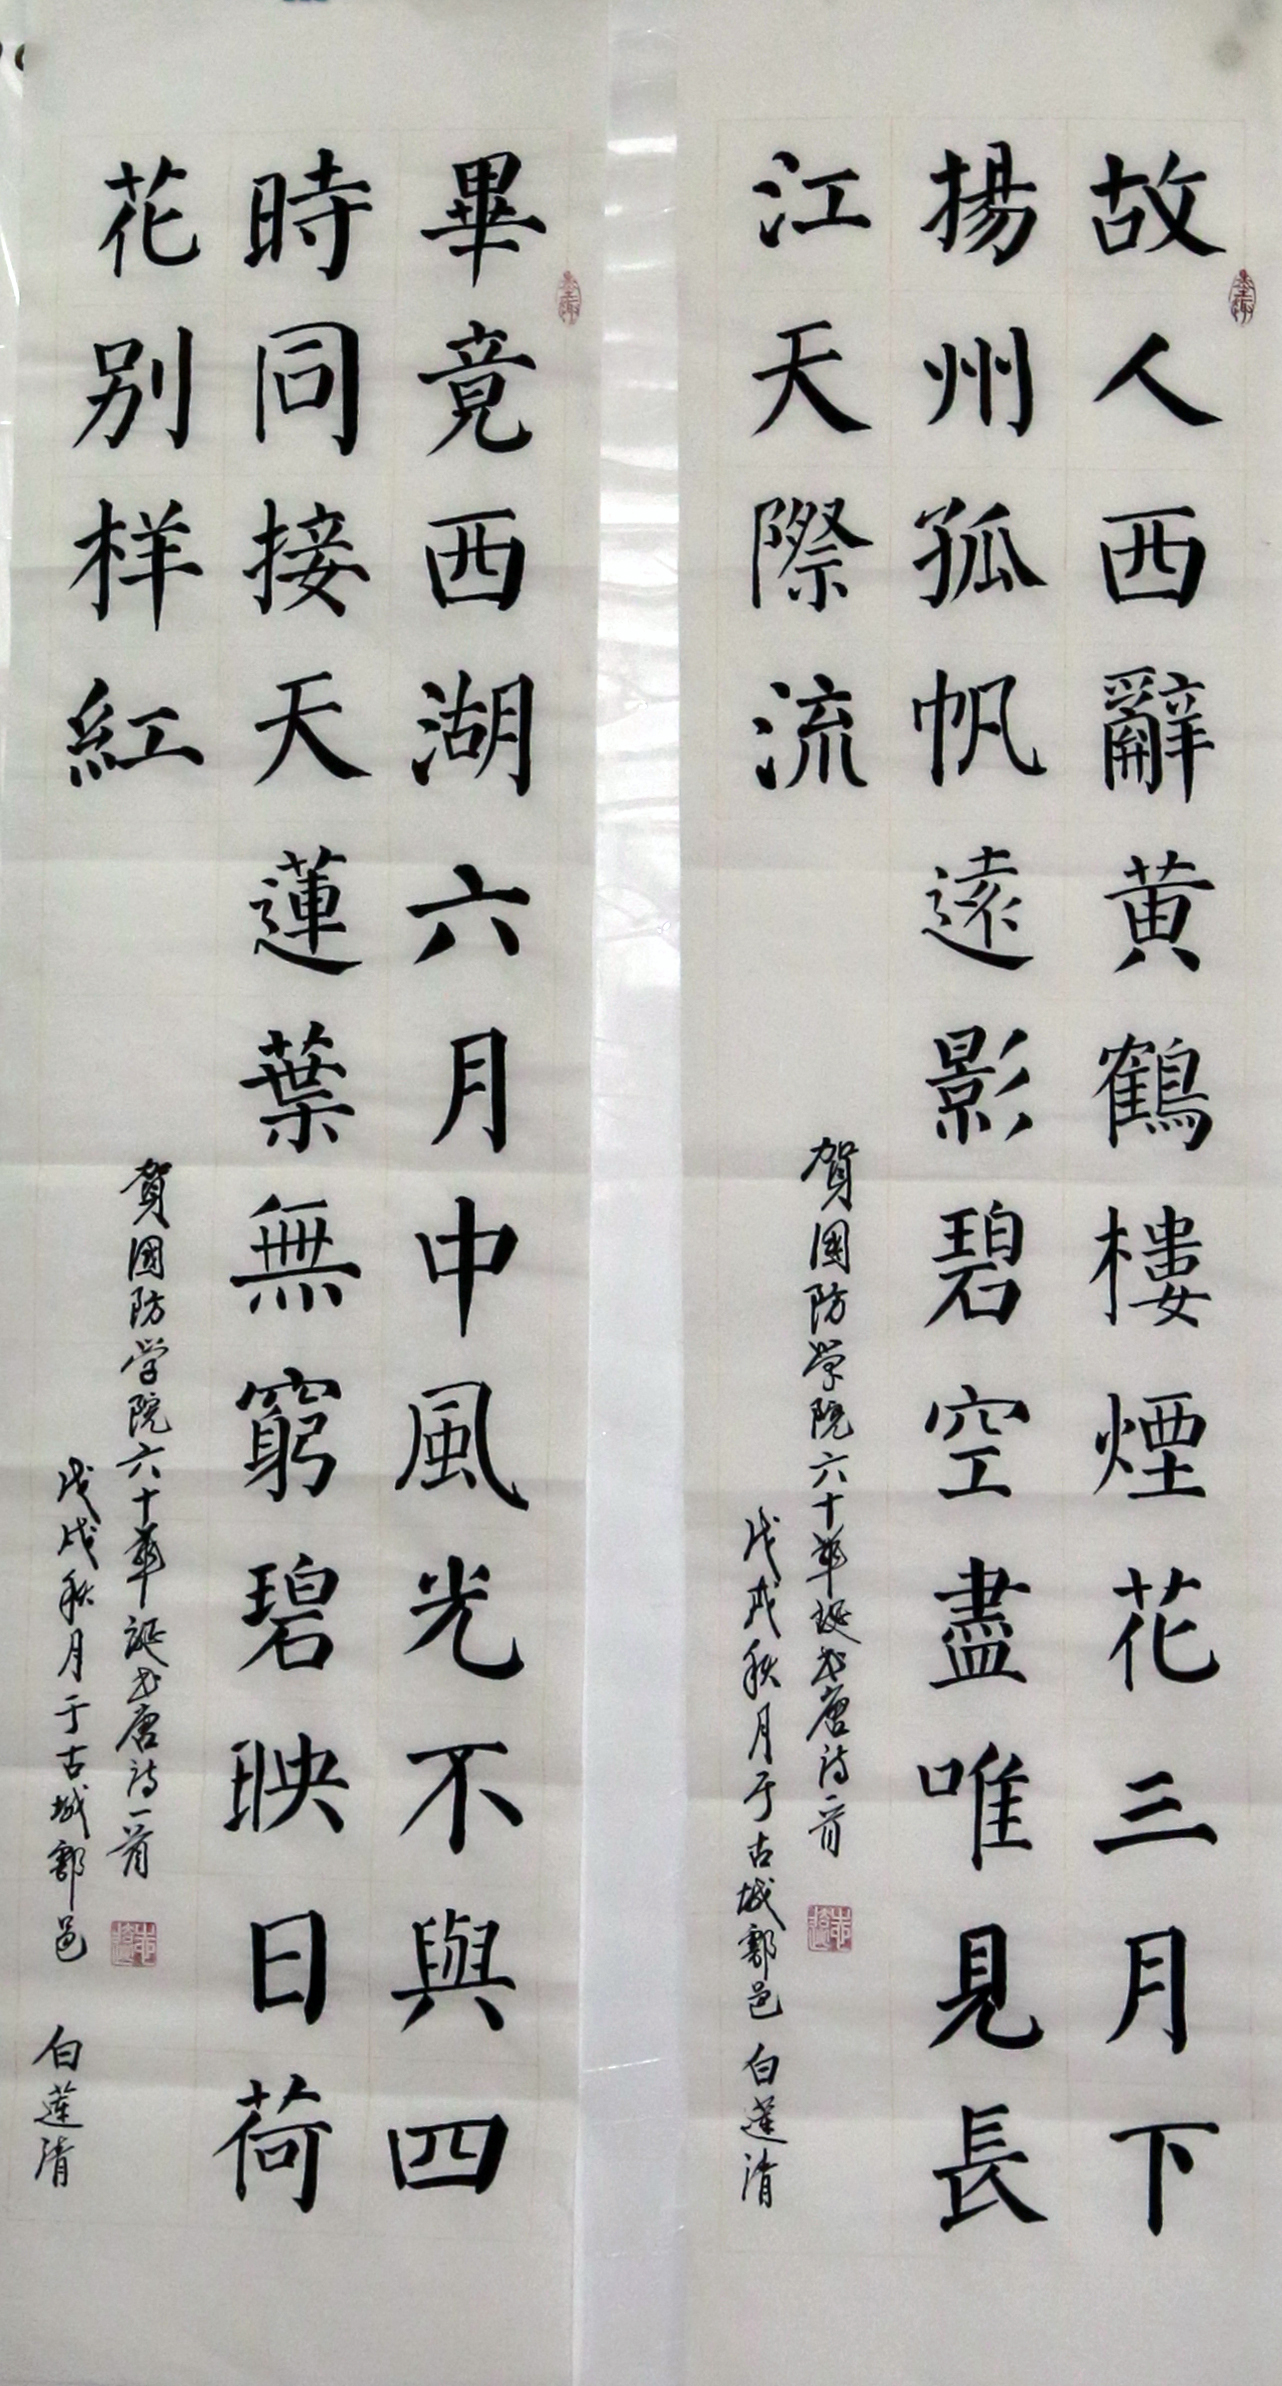 故人西辭黄鶴樓煙花三月下
揚州孤帆遠影碧空盡唯見長
江天際流
賀國防学院六十華誕书唐诗一首
戊戌秋月于古城鄴邑 白莲清
畢竟西湖六月中風光不與四
時同接天蓮葉無窮碧映日荷
花别样紅
賀國防学院六十華誕书唐诗一首
戊戌秋月于古城鄴邑 白莲清